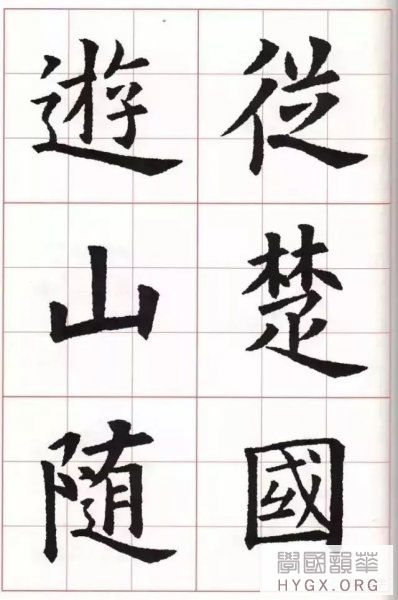 従楚國
遊山随
華韻國學
HYGX.ORG